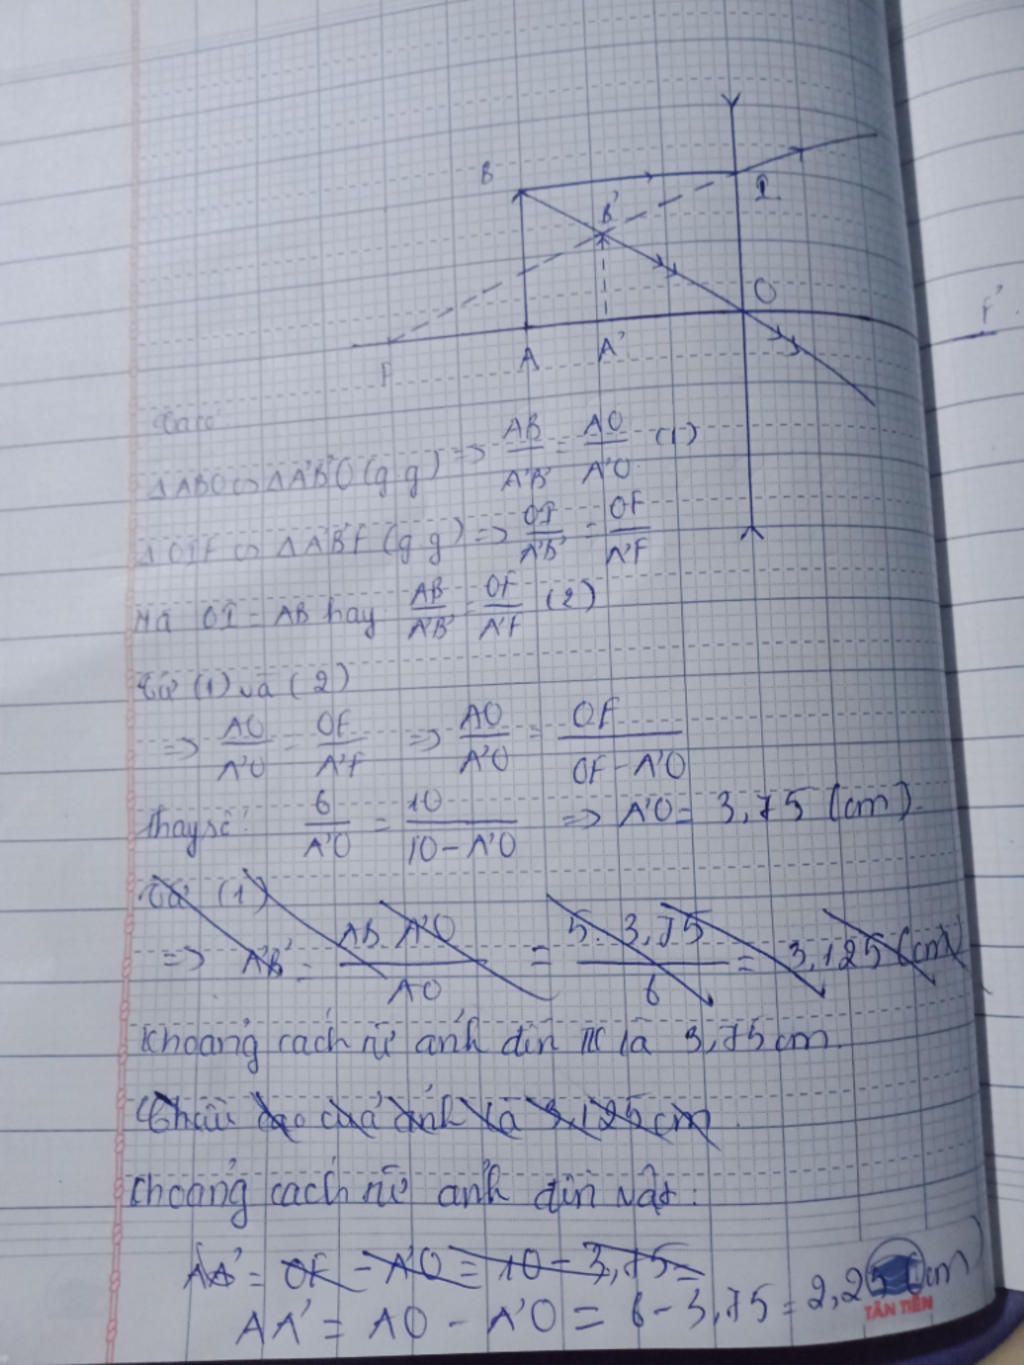 B
B'
I
O
F'
F
A
A'
Ta có:
ΔABO ∽ ΔA'B'O (g g) => AB/A'B' = AO/A'O (1)
ΔOIF ∽ ΔA'B'F (g g) => OI/A'B' = OF/A'F
Mà OI = AB hay AB/A'B' = OF/A'F (2)
Từ (1) và (2)
=> AO/A'O = OF/A'F => AO/A'O = OF/OF - A'O
Thay số: 6/A'O = 10/10 - A'O => A'O = 3,75 (cm).
Từ (1)
=> A'B' = AB. A'O/AO = 5. 3,75/6 = 3,125 (cm)
Khoảng cách từ ảnh đến TK là 3,75 cm.
Chiều cao của ảnh là 3,125 cm.
Khoảng cách từ ảnh đến vật:
AA' = OF - A'O = 10 - 3,75 =
AA' = AO - A'O = 6 - 3,75 = 2,25 (cm)
TÂN TIẾN